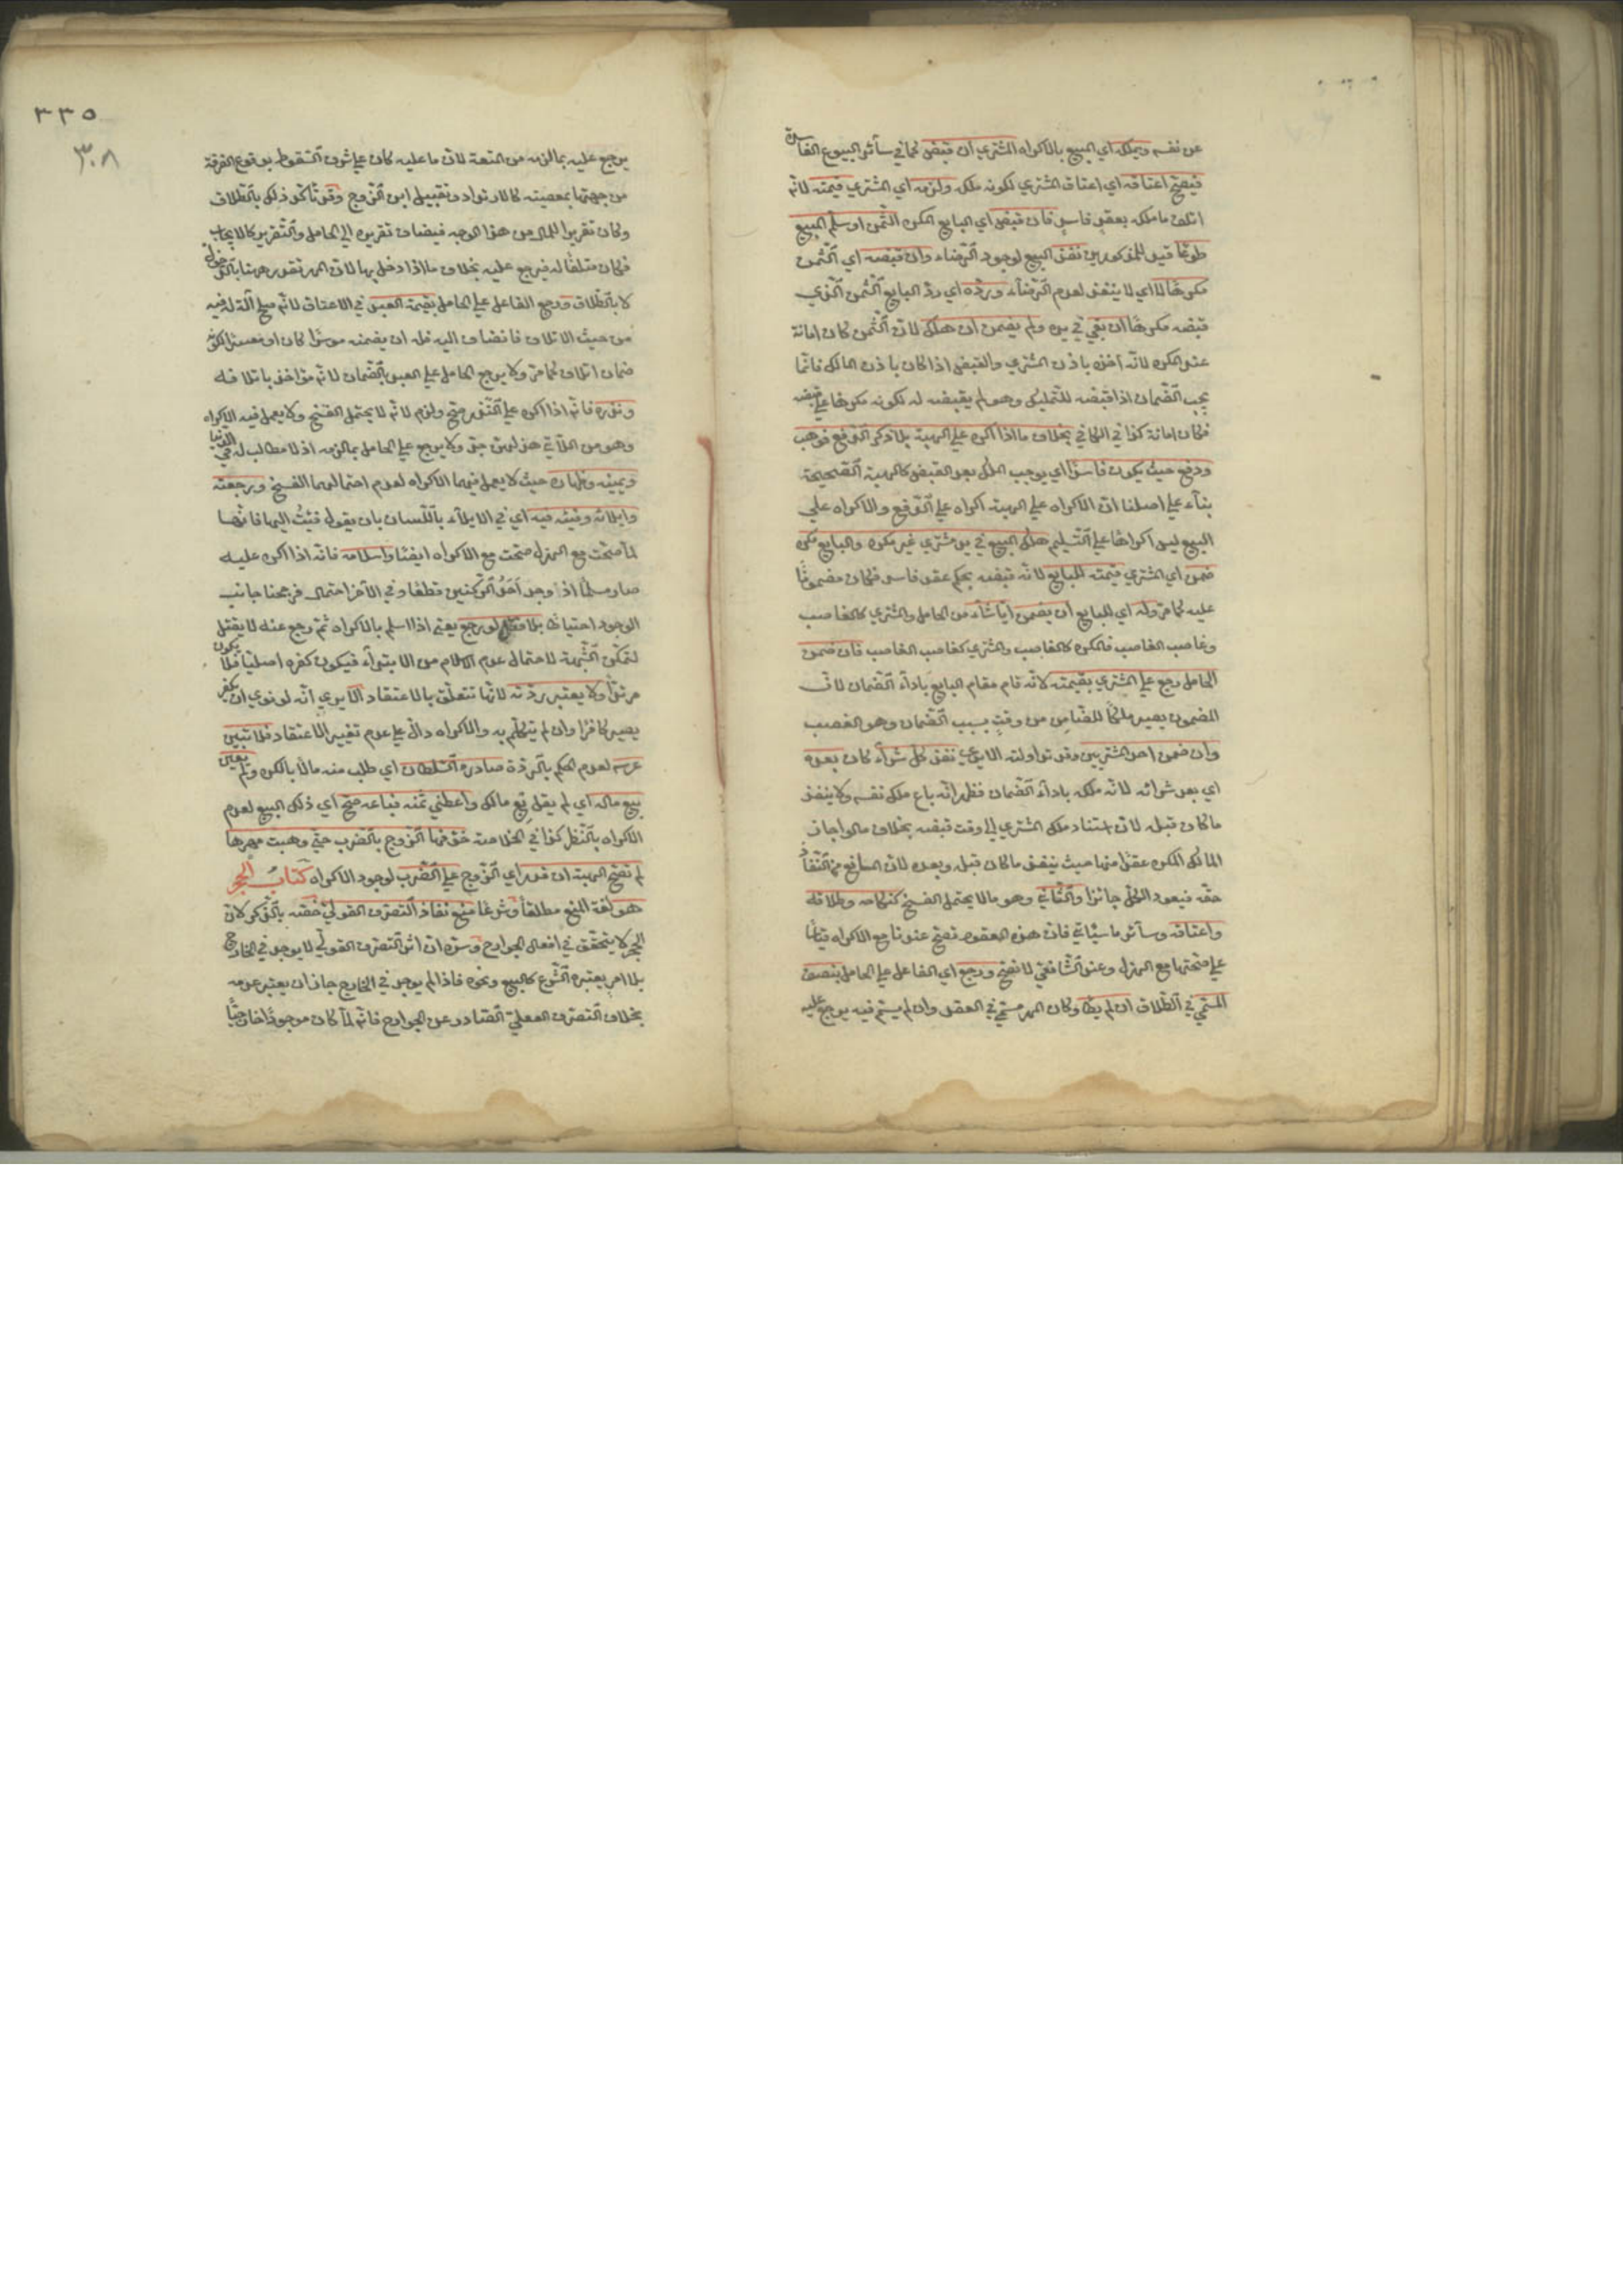 عن نفسه ويملكه اي المبيع بالاكراه المشتري ان قبض كما في سائر البيوع الفاسدة
فيصح اعتاقه اي اعتاق المشتري لكونه ملكه ولزمه اي المشتري قيمته لانه
اتلف ما ملكه بعقد فاسد فان قبض اي البايع المكره الثمن او سلم المبيع
طوعا قيد للمذكورين نفذ البيع لوجود الرضاء وان قبضه اي الثمن
مكرها لا اي لا ينفذ لعدم الرضاء ورده اي رد البايع الثمن الذي
قبضه مكرها ان بقي في يده ولم يضمن ان هلك لان الثمن كان امانة
عند المكره لانه اخذه باذن المشتري والقبض اذا كان باذن المالك فانما
يجب الضمان اذا قبضه للتمليك وهو لم يقبضه له لكونه مكرها على قبضه
فكان امانة كذا في الكافي بخلاف ما اذا اكره على الهبة بلا ذكر الدفع فوهب
ودفع حيث يكون فاسدا اي يوجب الملك بعد القبض كالهبة الصحيحة
بناء على اصلنا ان الاكراه على الهبة اكراه على الدفع والاكراه على
البيع ليس اكراها على التسليم هلك المبيع في يد مشتري غير مكره والبايع مكره
ضمن اي المشتري قيمته للبايع لانه قبضه بحكم عقد فاسد فكان مضمونا
عليه كما مر وله اي للبايع ان يضمن ايا شاء من الحامل والمشتري كالغاصب
وغاصب الغاصب فالمكره كالغاصب والمشتري كغاصب الغاصب فان ضمن
الحامل رجع على المشتري بقيمته لانه قام مقام البايع باداء الضمان لان
المضمون يصير ملكا للضامن من وقت بسبب الضمان وهو الغصب
وان ضمن احد المشتريين وقد تداولته الايدي نفذ كل شراء كان بعده
اي بعد شرائه لانه ملكه باداء الضمان فظهر انه باع ملك نفسه ولا ينفذ
ما كان قبله لان استناد ملك المشتري الى وقت قبضه بخلاف ما لو اجاز
المالك المكره عقدا منها حيث ينفذ ما كان قبله وبعده لان المانع من النفاذ
حقه فيعود الكل جائزا والثاني وهو ما لا يحتمل الفسخ كنكاحه وطلاقه
واعتاقه وسائر ما سياتي فان هذه العقود تصح عندنا مع الاكراه قياسا
على صحتها مع الهزل وعند الشافعي لا تصح ورجع اي الفاعل على الحامل بنصف
المسمى في الطلاق ان لم يطأ وكان المهر مسمى في العقد وان لم يسم فيه يرجع عليه
٣٣٥
٣٠٨
يرجع عليه بما لزمه من المتعة لان ما عليه كان على شرف السقوط بوقوع الفرقة
من جهتها بمعصيته كالارتداد وتقبيل ابن الزوج وقد تاكد ذلك بالطلاق
وكان تقريرا للمال من هذا الوجه فيضاف تقريره الى الحامل والتقرير كالايجاب
فكان متلفا له فيرجع عليه بخلاف ما اذا دخل بها لان المهر تقرر ههنا بالدخول
لا بالطلاق ورجع الفاعل على الحامل بقيمة العبد في الاعتاق لانه صلح آلة له فيه
من حيث الاتلاف فانضاف اليه فله ان يضمنه موسرا كان او معسرا لكونه
ضمان اتلاف كما مر ولا يرجع الحامل على العبد بالضمان لانه مؤاخذ باتلافه
ونذره فانه اذا اكره على النذر صح ولزم لانه لا يحتمل الفسخ ولا يعمل فيه الاكراه
وهو من اللاتي هزلهن جد ولا يرجع على الحامل بما لزمه اذ لا مطالب له في الدنيا
ويمينه وظهاره حيث لا يعمل فيهما الاكراه لعدم احتمالهما الفسخ ورجعته
وايلائه وفيئه فيه اي في الايلاء باللسان بان يقول فئت اليها فانها
لما صحت مع الهزل صحت مع الاكراه ايضا واسلامه فانه اذا اكره عليه
صار مسلما اذ وجد احد الركنين قطعا وفي الآخر احتمال فرجحنا جانب
الوجود احتياطا بلا قتله لو رجع يعني اذا اسلم بالاكراه ثم رجع عنه لا يقتل
لتمكن الشبهة لاحتمال عدم الاسلام من الابتداء فيكون كفره اصليا فلا يكون
مرتدا ولا يعتبر ردته لانها تتعلق بالاعتقاد الا يرى انه لو نوى ان يكفر
يصير كافرا وان لم يتكلم به والاكراه دال على عدم تغيير الاعتقاد فلا تبين
عرسه لعدم الحكم بالردة صادره السلطان اي طلب منه مالا بالكره ولم يعين
بيع ماله اي لم يقل بع مالك واعطني ثمنه فباعه صح اي ذلك البيع لعدم
الاكراه بالنظر كذا في الخلاصة خوفها الزوج بالضرب حتى وهبت مهرها
لم تصح الهبة ان قدر اي الزوج على الضرب لوجود الاكراه كتاب الحجر
هو لغة المنع مطلقا وشرعا منع نفاذ التصرف القولي خصه بالذكر لان
الحجر لا يتحقق في افعال الجوارح وسره ان اثر التصرف القولي لا يوجد في الخارج
بل امر يعتبره الشرع كالبيع ونحوه فاذا لم يوجد في الخارج جاز ان يعتبر عدمه
بخلاف التصرف الفعلي الصادر عن الجوارح فانه لما كان موجودا خارجيا